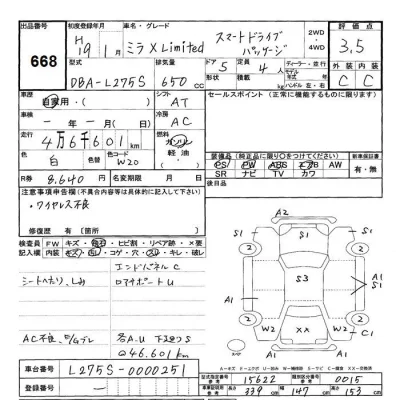 出品番号
668
初度登録年月
H19年1月
車名・グレード
ミラ X Limited
スマートドライブ
パッケージ
2WD
・4WD
評価点
3.5
型式
DBA-L275S
排気量
650 CC
ドア
5
形状
定員
4人
積載
kg
ディーラー・並行
モデル年式
年
ハンドル 左・右
外装
内装
C
C
車歴
自家用・( )
シフト
AT
車検
一年一月
冷房
AC
走行
4万6千601km
燃料
ガソリン
軽油
色
白
色コード
W20
R券
8,640円
名変期限
月 日
セールスポイント(正常に機能するものに限ります)
装備品(純正に限り○をつけてください)
PS PW ABS エアB AW
SR ナビ TV カワ
新車保証書
有・無
後日品
注意事項申告欄(不具合内容等は具体的に記入して下さい)
・ワイヤレス不良
修復歴 有(箇所 )
検査員記入欄
FW キズ・飛石・ヒビ割・リペア跡・×要
内装 キズ・汚レ・コゲ・穴・スレ・キレ・破レ
シートへたり、しみ
エンドパネル C
ロアサポート U
AC不良
各A・U 下廻りS
@46.601km
車台番号
L275S-0000251
登録番号
型式指定番号
15622
類別区分番号
0015
長さ
339
幅
147
高さ
153
A2
S1
S1
2
2
A1
S3
A1
S1
A1
W2
XX
W2
C1
2
2
スペア